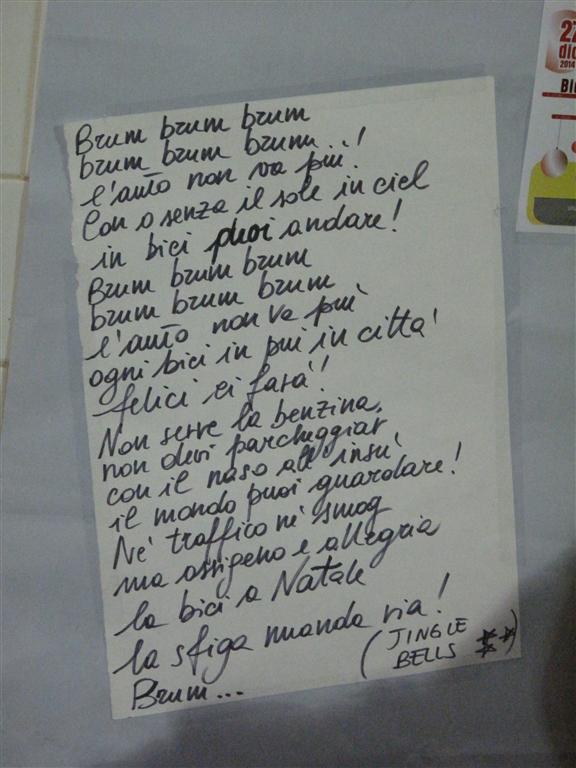 Brum brum brum
brum brum brum...!
l'auto non va più.
Con o senza il sole in ciel
in bici puoi andare!
Brum brum brum
brum brum brum
l'auto non va più
ogni bici in più in città
felici ci farà!
Non serve la benzina,
non devi parcheggiar
con il naso all'insù
il mondo puoi guardare!
Nè traffico nè smog
ma ossigeno e allegria
la bici a Natale
la sfiga manda via!
Brum...
(JINGLE BELLS ***)
27
dic
2014